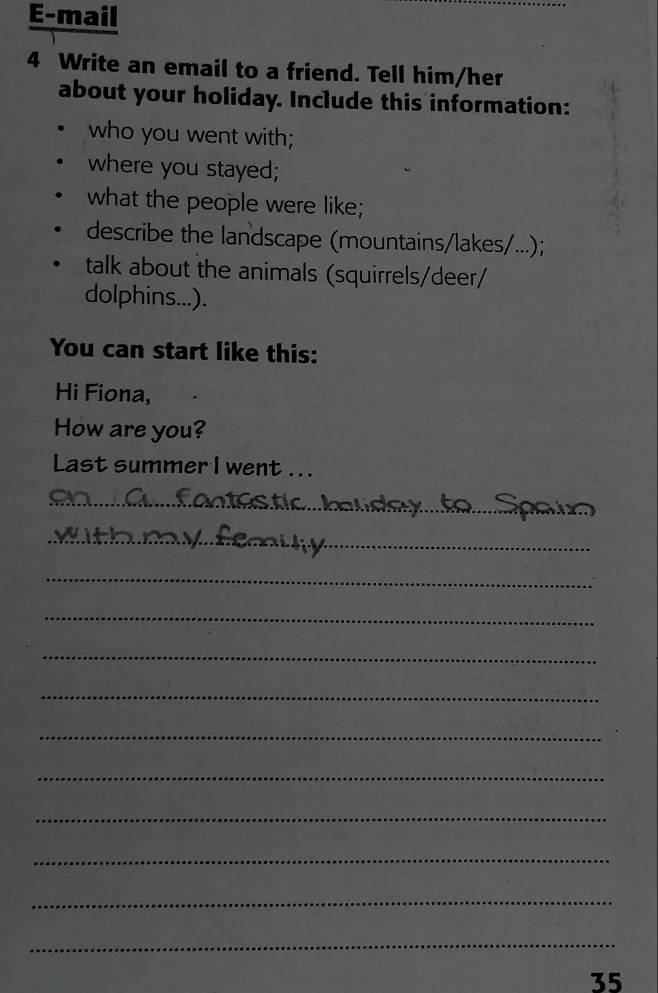 E-mail
4 Write an email to a friend. Tell him/her
about your holiday. Include this information:
• who you went with;
• where you stayed;
• what the people were like;
• describe the landscape (mountains/lakes/...);
• talk about the animals (squirrels/deer/
dolphins...).
You can start like this:
Hi Fiona,
How are you?
Last summer I went ...
on a fantastic holiday to Spain
with my femiliy
35